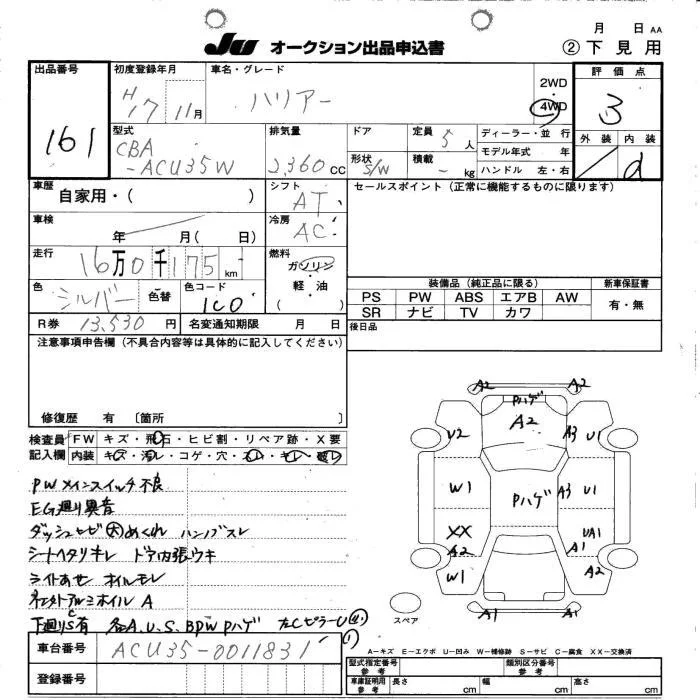 月 日 AA
JU オークション出品申込書 ② 下見用
出品番号 初度登録年月 車名・グレード 2WD 評価点
161 H17 11月 ハリアー 4WD 3
型式 排気量 ドア 定員 5人 ディーラー・並行 外装 内装
CBA-ACU35W 2,360cc 形状 S/W 積載 - kg モデル年式 年 ハンドル 左・右 d
車歴 自家用・( ) シフト AT セールスポイント(正常に機能するものに限ります)
車検 年 月( 日) 冷房 AC
走行 16万0千175km 燃料 ガソリン 軽・油 ( )
色 シルバー 色替 色コード 1C0
装備品(純正品に限る) 新車保証書
PS PW ABS エアB AW 有・無
SR ナビ TV カワ
R券 13,530円 名変通知期限 月 日 後日品
注意事項申告欄(不具合内容等は具体的に記入してください)
修復歴 有 〔箇所 〕
検査員記入欄 FW キズ・飛石・ヒビ割・リペア跡・X要
内装 キズ・汚レ・コゲ・穴・
PWメインスイッチ不良
EG廻り異音
ダッシュセビ 大 めくれ ハンドズレ
シートヘタリキレ ドア内張ウキ
ライトあせ オイルモレ
社外アルミホイルA
下廻りS.C有 各A.U.S.BPW Pハゲ 左CピラーU
車台番号 ACU35-0011831
登録番号
A2 A2
Pハゲ
A2
U2 A3 U1
W1 Pハゲ A3 U1
XX UA1
A2 A1
W1 A2
A1 A1
スペア
A-キズ E-エクボ U-凹み W-補修跡 S-サビ C-腐食 XX-交換済
型式指定番号 参考 類別区分番号 参考
車庫証明用 参考 長さ cm 幅 cm 高さ cm